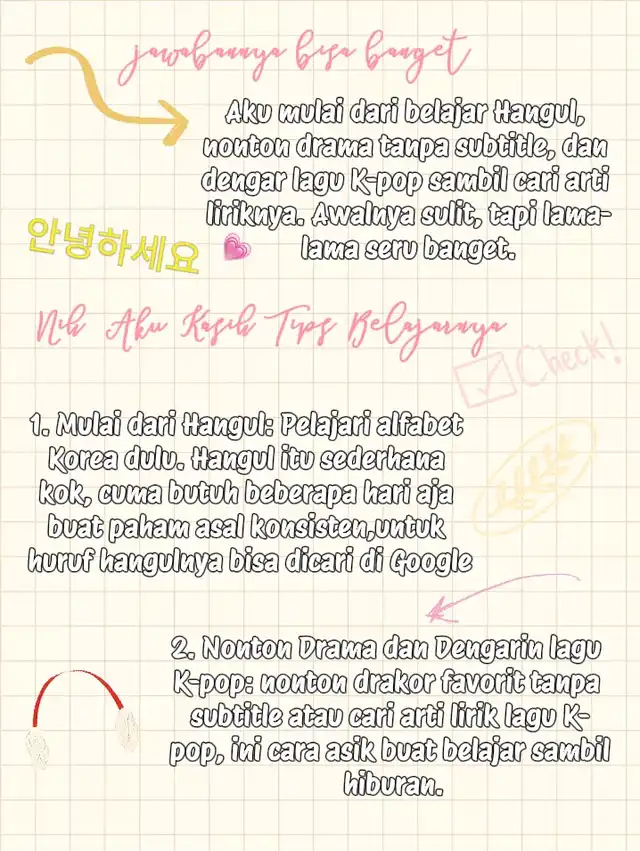 jawabannya bisa banget
Aku mulai dari belajar Hangul,
nonton drama tanpa subtitle, dan
dengar lagu K-pop sambil cari arti
liriknya. Awalnya sulit, tapi lama-
lama seru banget.
안녕하세요
Nih Aku Kasih Tips Belajarnya
Check!
1. Mulai dari Hangul: Pelajari alfabet
Korea dulu. Hangul itu sederhana
kok, cuma butuh beberapa hari aja
buat paham asal konsisten,untuk
huruf hangulnya bisa dicari di Google
2. Nonton Drama dan Dengarin lagu
K-pop: nonton drakor favorit tanpa
subtitle atau cari arti lirik lagu K-
pop, ini cara asik buat belajar sambil
hiburan.